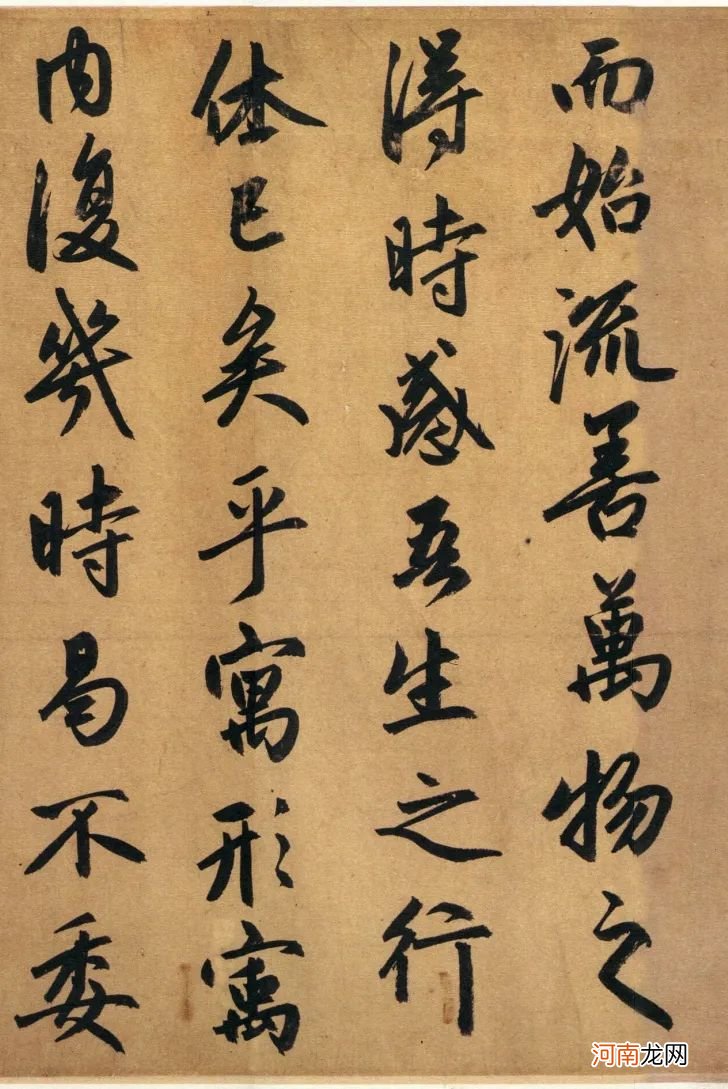 而始流善萬物之
得時感吾生之行
休已矣乎寓形寓
內復幾時曷不委
河南龙网